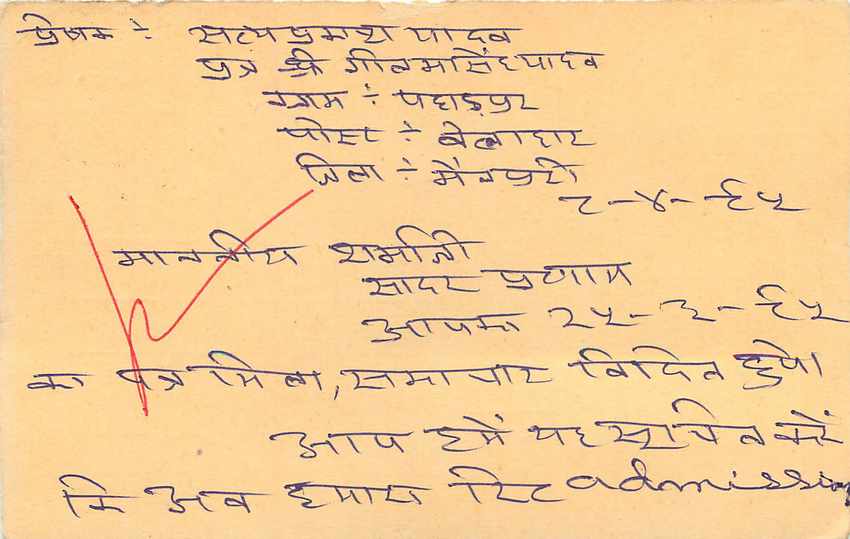 प्रेषक :- सत्य प्रकाश यादव
पुत्र श्री गीतमसिंह यादव
ग्राम :- पहाड़पुर
पोस्ट :- बेलाहार
जिला :- मैनपुरी
८-४-६५
माननीय शर्माजी
सादर प्रणाम
आपका २५-३-६५
का पत्र मिला, समाचार विदित हुये।
आप हमें यह सूचित करें
कि अब हमारा रिट admission